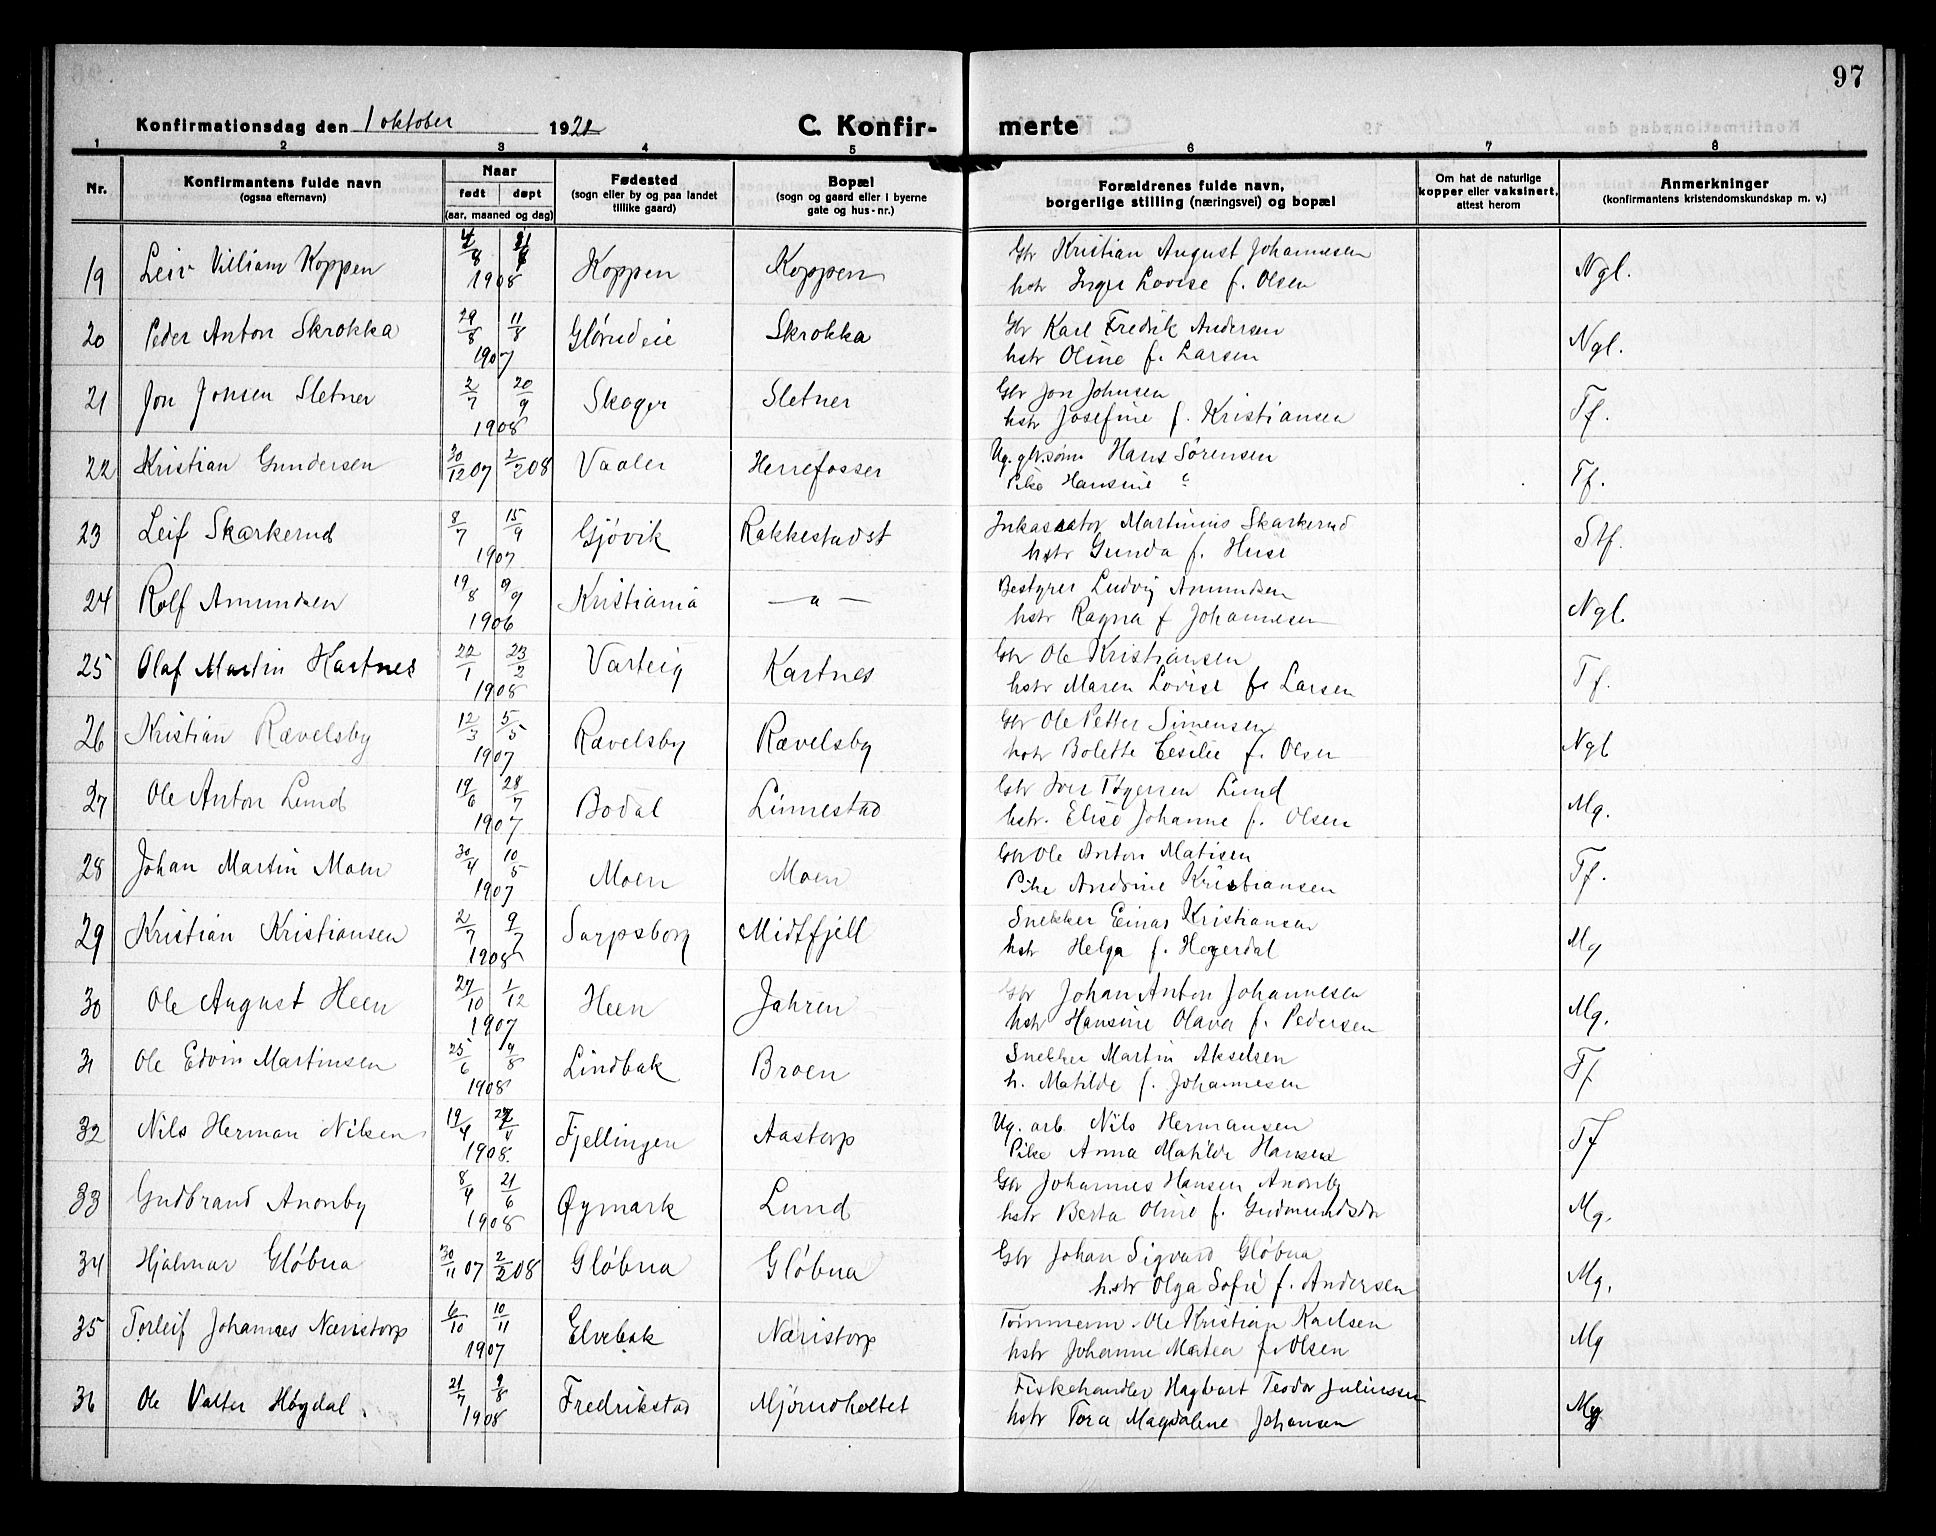 97
Konfirmationsdag den 1 oktober 1922 C. Konfir- merte
1 2 3 4 5 6 7 8
Nr. Konfirmantens fulde navn (ogsaa efternavn) Naar født døpt (aar, maaned og dag) Fødested (sogn eller by og paa landet tillike gaard) Bopæl (sogn og gaard eller i byerne gate og hus-nr.) Forældrenes fulde navn, borgerlige stilling (næringsvei) og bopæl Om hat de naturlige kopper eller vaksinert, attest herom Anmerkninger (konfirmantens kristendomskundskap m. v.)
19 Leiv Villiam Koppen 4/8 1908 Koppen Koppen Gbr Kristian August Johannesen Ngl.
hstr Inga Lovise f. Olsen
20 Peder Anton Skrokka 29/8 11/8 1907 Glørudeie Skrokka Gbr Karl Fredrik Andersen Ngl.
hstr Oline f. Larsen
21 Jon Jonsen Sletner 2/7 20/9 1908 Skoger Sletner Gbr Jon Johnsen Tf.
hstr Josefine f. Kristiansen
22 Kristian Gundersen 30/12 07 2/2 08 Vaaler Herrefosser Ug. gbr.sønn Hans Sørensen Tf.
Pike Hansine
23 Leif Skarkerud 8/7 15/9 1907 Gjøvik Rakkestadst Inkassator Martinius Skarkerud Stf.
hstr Gunda f. Huse
24 Rolf Amundsen 19/8 9/9 1906 Kristiania — a — Bestyrer Ludvig Amundsen Ngl.
hstr Ragna f Johannesen
25 Olaf Martin Hartnes 22/1 23/2 1908 Varteig Kartnes Gbr Ole Kristiansen Tf.
hstr Maren Lovise f. Larsen
26 Kristian Rævelsby 12/3 5/5 1907 Rævelsby Rævelsby Gbr Ole Petter Simensen Ngl
hstr Bolette Cesilie f. Olsen
27 Ole Anton Lund 19/6 28/7 1907 Bodal Linnestad Gbr Iver Tøgersen Lund Mg.
hstr. Elise Johanne f. Olsen
28 Johan Martin Moen 30/4 10/5 1907 Moen Moen Gbr Ole Anton Matisen Tf.
Pike Andrine Kristiansen
29 Kristian Kristiansen 2/7 9/7 1908 Sarpsborg Midtfjell Snekker Einar Kristiansen Mg
hstr Helga f. Hegerdal
30 Ole August Heen 27/10 1/12 1907 Heen Jahren Gbr Johan Anton Johannesen Mg.
hstr Hansine Olava f. Pedersen
31 Ole Edvin Martinsen 25/6 9/8 1908 Lindbak Broen Snekker Martin Akselsen Tf
h. Matilde f. Johannesen
32 Nils Herman Nilsen 19/4 1908. Fjellingen Aastorp Ug. arb. Nils Hermansen Tf
Pike Anna Matilde Hansen
33 Gudbrand Anonby 8/4 21/6 1908 Øymark Lund Gbr Johannes Hansen Anonby Mg.
hstr Berta Oline f. Gudmundsdr
34 Hjalmar Gløbua 30/11 07 2/2 08 Gløbua Gløbua Gbr Johan Sigvard Gløbua Mg.
hstr Olga Sofie f. Andersen
35 Torleif Johannes Næristorp 6/10 10/11 1907 Elvebak Næristorp Tømmerm. Ole Kristian Karlsen Mg
hstr Johanne Matea f. Olsen
36 Ole Valter Høgdal. 21/7 9/8 1908 Fredrikstad Mjørudholtet Fiskehandler Hagbart Teodor Juliussen Mg
hstr Tora Magdalene Johansen